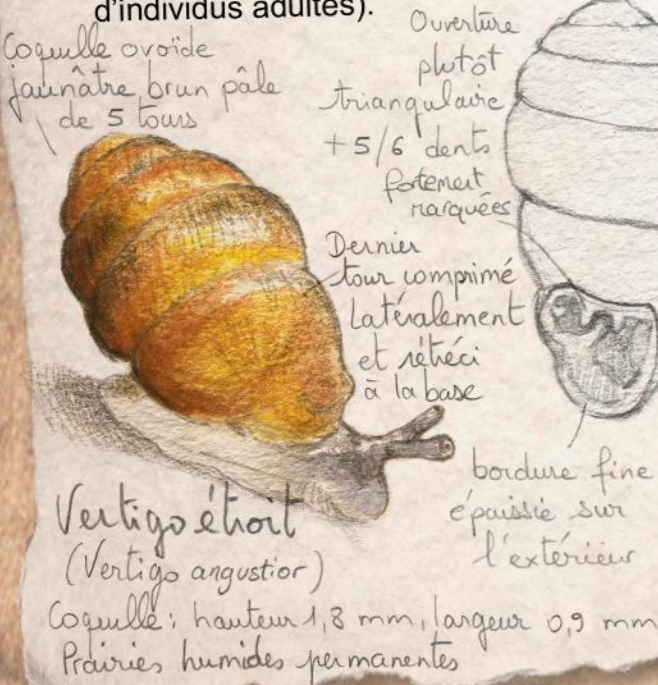 d'individus adultes).
Coquille ovoïde
jaunâtre, brun pâle
de 5 tours
Ouverture
plutôt
triangulaire
+ 5/6 dents
fortement
marquées
Dernier
tour comprimé
latéralement
et rétréci
à la base
bordure fine
épaissie sur
l'extérieur
Vertigo étroit
(Vertigo angustior)
Coquille : hauteur 1,8 mm, largeur 0,9 mm
Prairies humides permanentes